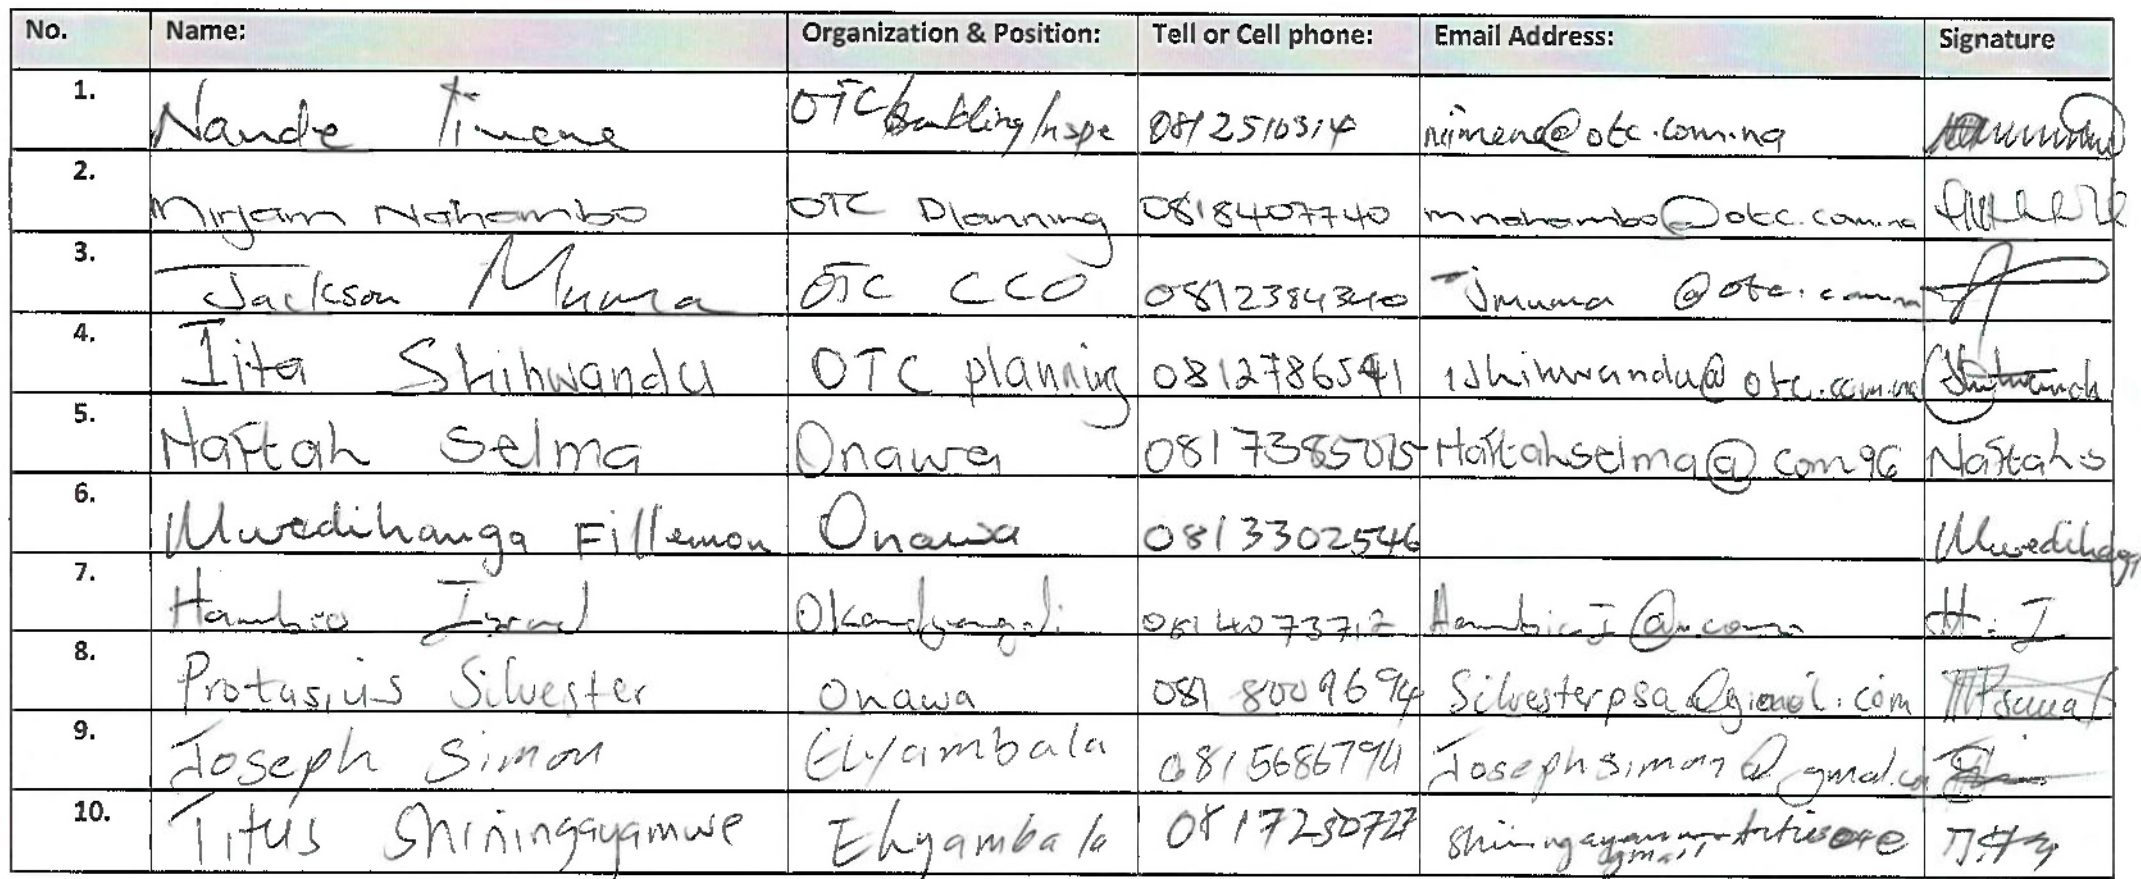 No. Name: Organization & Position: Tell or Cell phone: Email Address: Signature
1. Nande Iimene OTC/Building/Inspe 0812510314 niimene@otc.com.na
2. Mirjam Nahambo OTC Planning 0818407740 mnahambo@otc.com.na
3. Jackson Muma OTC CCO 0812384340 jmuma @otc.com.na
4. Iita Shihwandu OTC planning 0812786541 ishihwandu@otc.com.na
5. Naftah Selma Onawa 0817385015 Naftahselma@com96 Naftah.S
6. Mwedihanga Fillemon Onawa 0813302546
7. Hambia Israel 0814073712 H. I
8. Protasius Silvester Onawa 0818009694 Silvesterpsa@gmail.com
9. Joseph Simon Ehyambala 0815686794 Josephsimon@gmail.com
10. Titus Shiningayamwe Ehyambala 0817230727